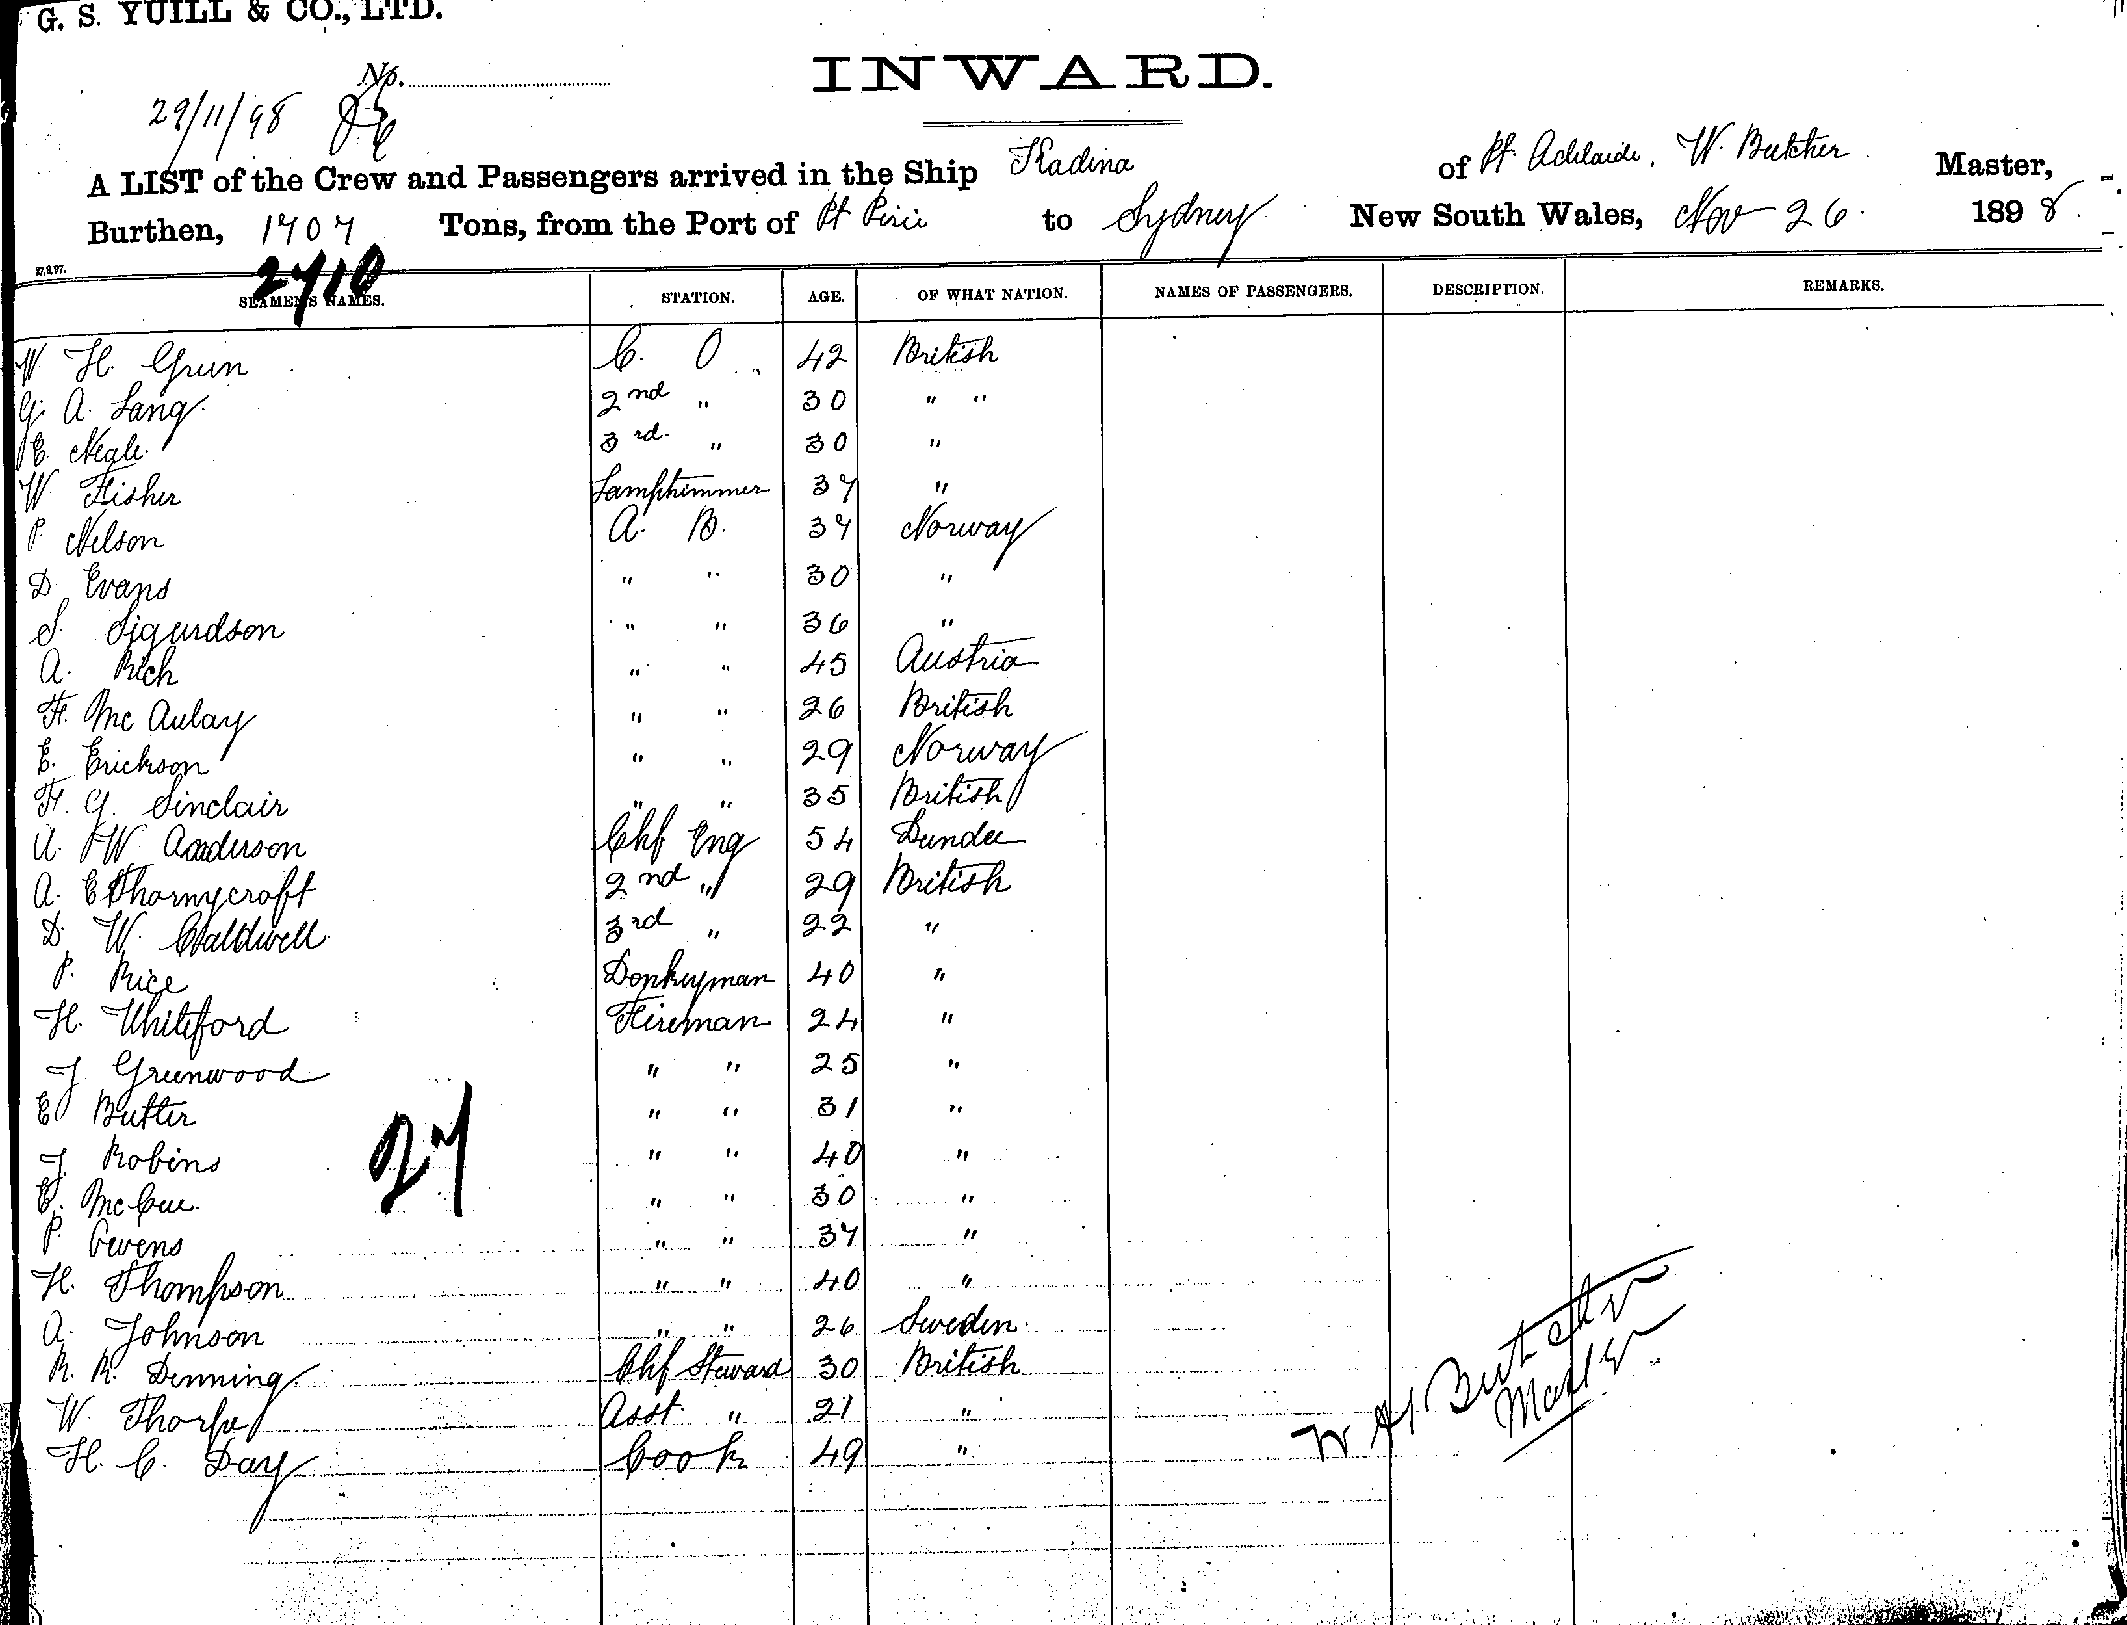 G. S. YUILL & CO., LTD.
No.
29/11/98
INWARD.
A LIST of the Crew and Passengers arrived in the Ship Kadina of Pt. Adelaide, W. Butcher Master,
Burthen, 1707 Tons, from the Port of Pt Pirie to Sydney New South Wales, Nov 26. 1898.
27.9.97.
2710
SEAMEN'S NAMES. STATION. AGE. OF WHAT NATION. NAMES OF PASSENGERS. DESCRIPTION. REMARKS.
W H. Green C. O. 42 British
G. A. Lang 2nd " 30 " "
E. Neale. 3rd. " 30 "
W Fisher Lamptrimmer 37 "
P. Nelson A. B. 37 Norway
D Evans " " 30 "
S. Sigurdson " " 36 "
A. Rich " " 45 Austria
F. Mc Aulay " " 26 British
E. Erickson " " 29 Norway
F. G. Sinclair " " 35 British
A. W. Anderson Chf Eng 54 Dundee
A. E Thornycroft 2nd " 29 British
D. W. Caldwell 3rd " 22 "
P. Rice Donkeyman 40 "
H. Whiteford Fireman 24 "
J Greenwood " " 25 "
E Butler " " 31 "
J. Robins " " 40 "
27
C. McCue. " " 30 "
P. Gevens " " 37 "
H. Thompson " " 40 "
A. Johnson " " 26 Sweden
R. R. Denning Chf Steward 30 British
W. Thorpe Asst. " 21 "
H. C. Day Cook 49 "
W H Butcher
Master